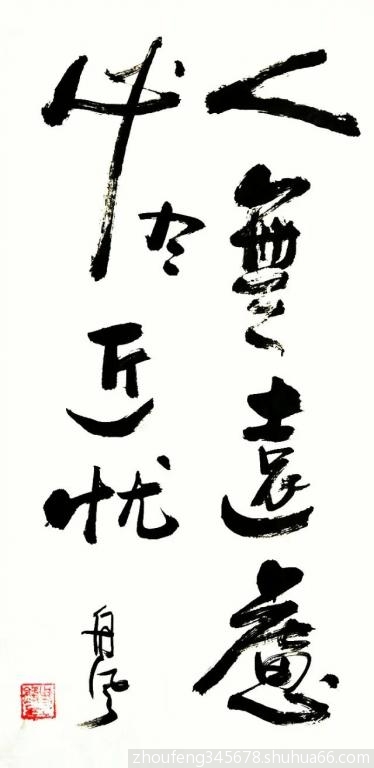 人無遠慮
必有近忧
zhoufeng345678.shuhua66.com